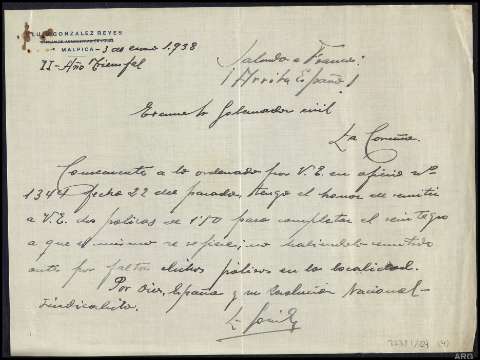 LUIS GONZALEZ REYES
MALPICA - 3 de enero 1.938
II - Año Triunfal
Saludo a Franco:
¡Arriba España!
Excmo Sr Gobernador civil
La Coruña.
Consecuente a lo ordenado por V.E. en oficio nº
1344 fecha 22 del pasado, tengo el honor de remitir
a V.E. dos polizas de 1'50 para completar el reintegro
a que el mismo se refiere; no habiendolo remitido
antes por faltar dichas polizas en la localidad.
Por Dios, España y su Revolución Nacional-
Sindicalista.